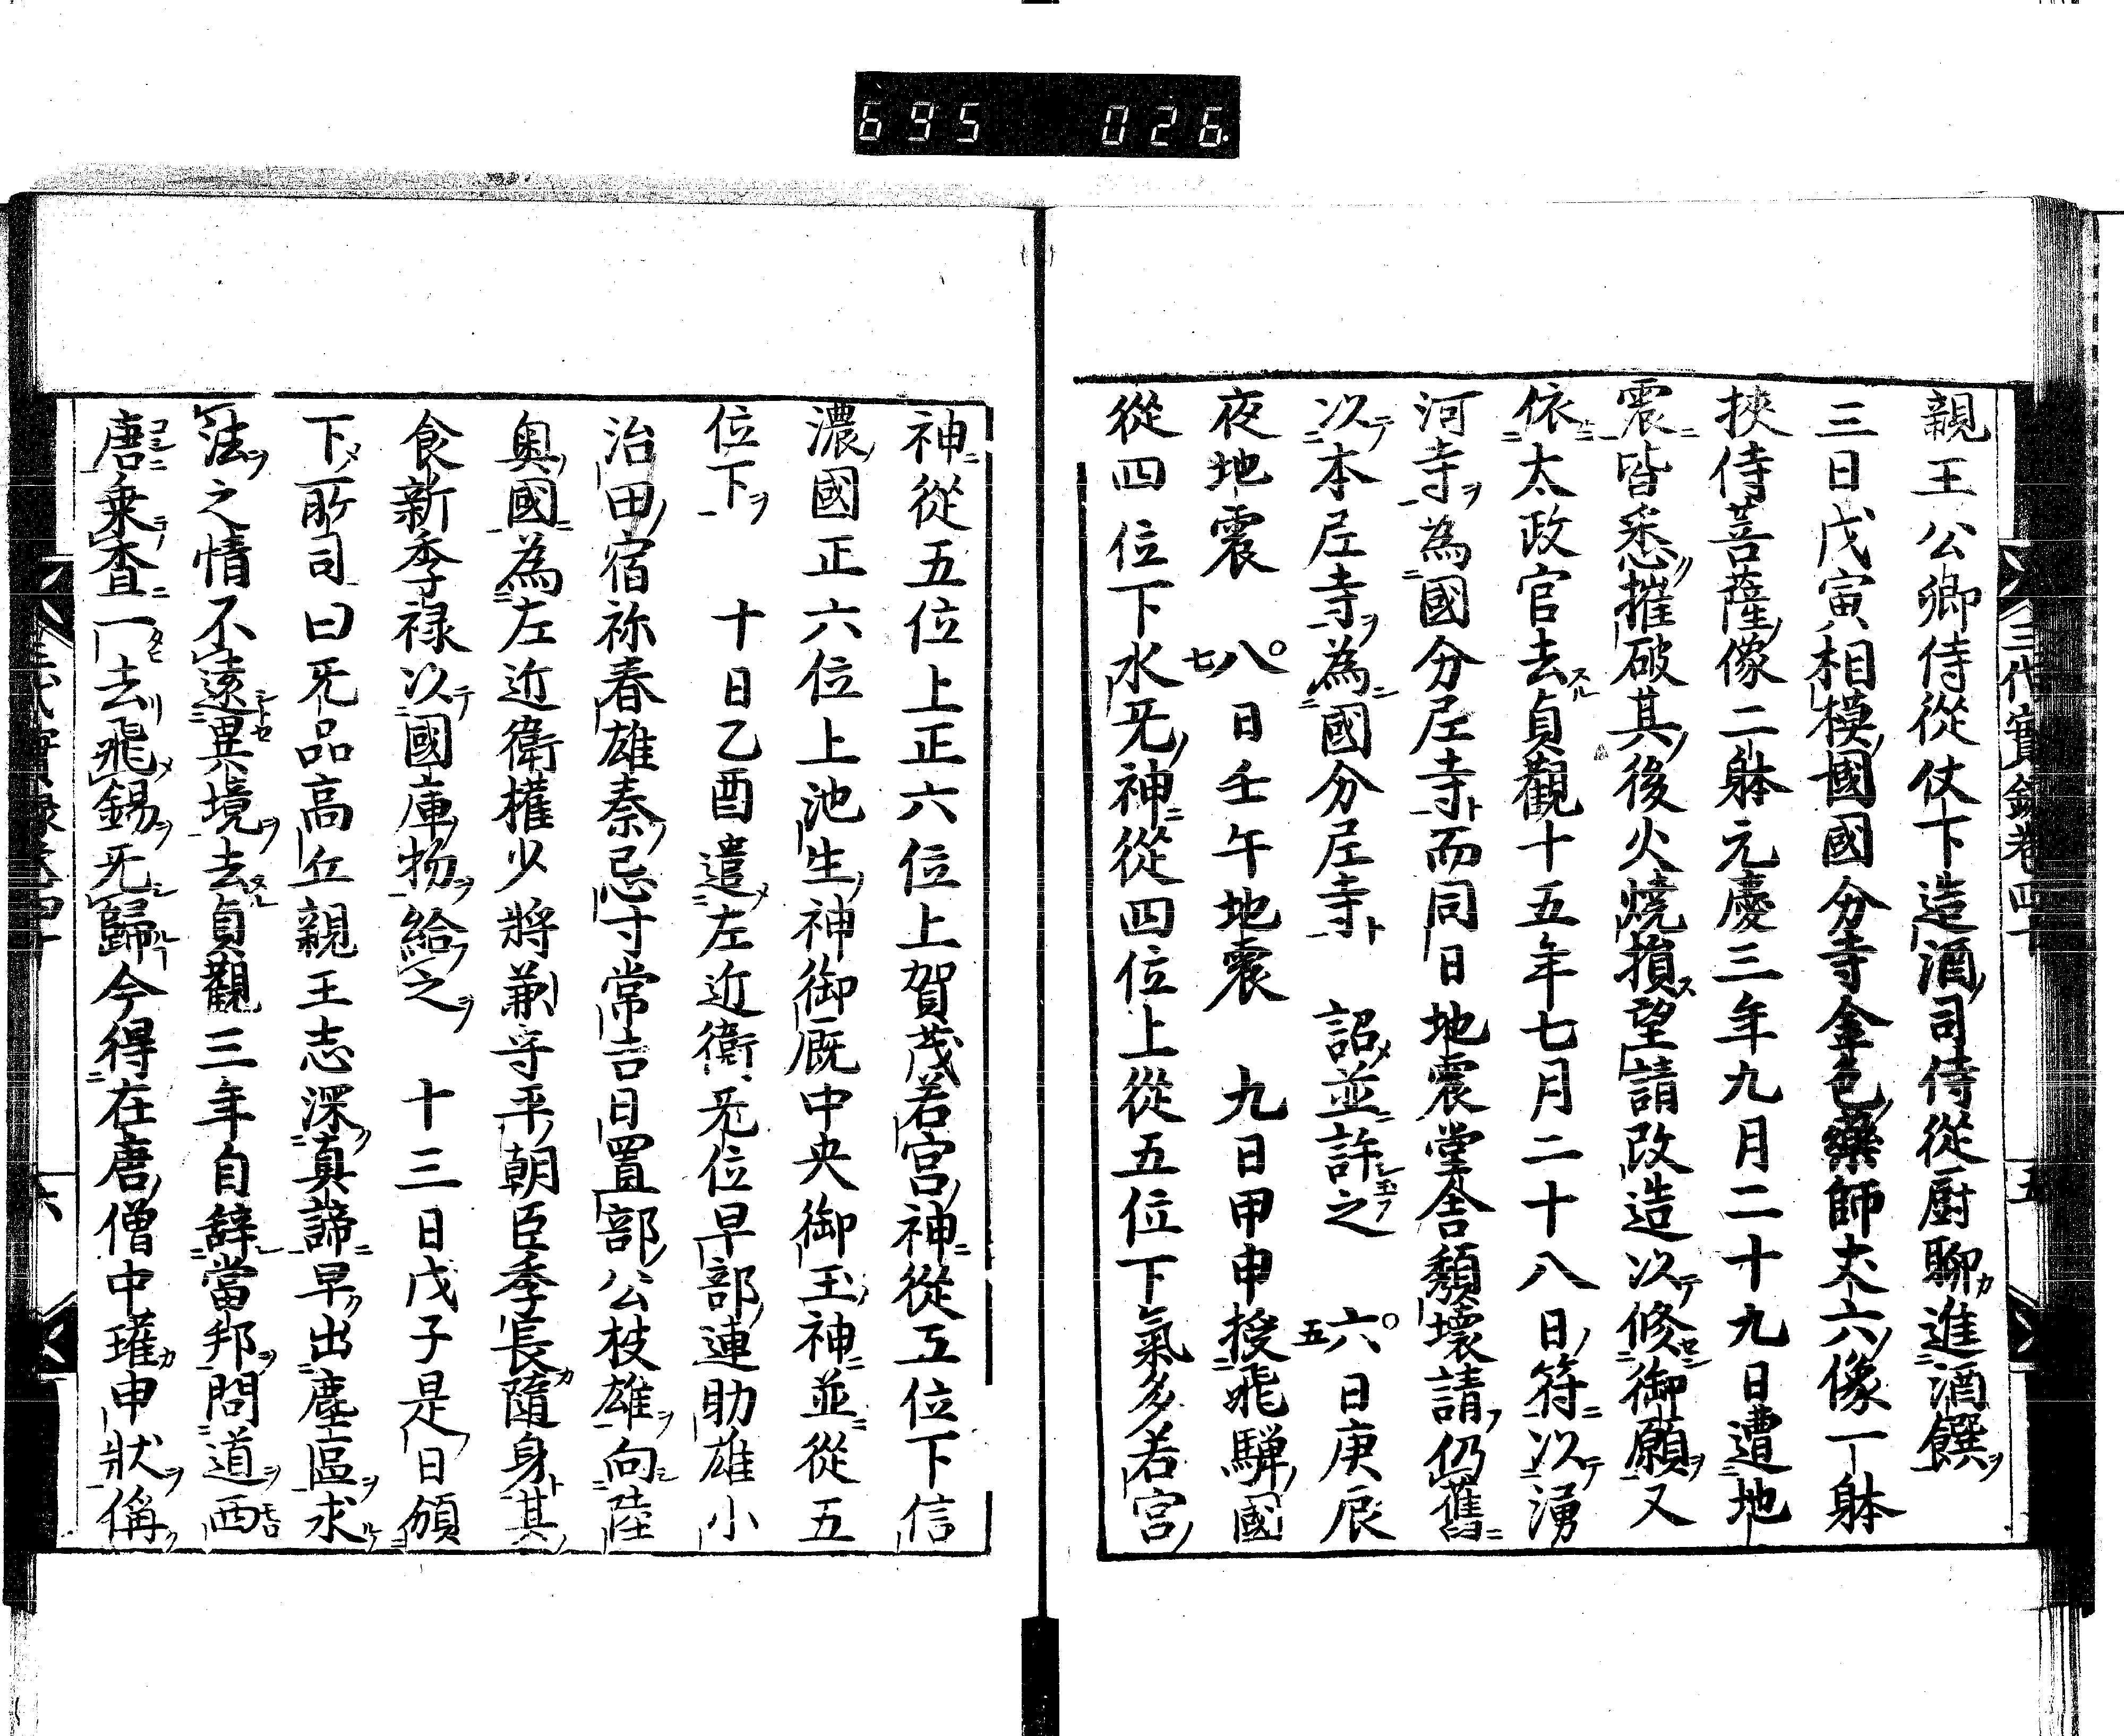 695 026
三代實録卷四十 五
親王公卿侍從仗下造酒司侍從厨聊進酒饌
三日戊寅相模國國分寺金色藥師丈六像一躰
挾侍菩薩像二躰元慶三年九月二十九日遭地
震皆悉摧破其後火燒損望請改造以修御願又
依太政官去貞觀十五年七月二十八日符以湧
河寺為國分尼寺而同日地震堂舎頽壞請仍舊
以本尼寺為國分尼寺 詔並許之 六日庚辰
夜地震 八日壬午地震 九日甲申授飛驒國
從四位下水旡神從四位上從五位下氣多若宮
神從五位上正六位上賀茂若宮神從五位下信
濃國正六位上池生神御厩中央御玉神並從五
位下 十日乙酉遣左近衛旡位早部連助雄小
治田宿祢春雄秦忌寸常吉日置部公枝雄向陸
奥國為左近衛權少將兼守平朝臣季長隨身其
食新季禄以國庫物給之 十三日戊子是日頒
下所司曰旡品高丘親王志深真諦早出塵區求
法之情不遠異境去貞觀三年自辭當邦問道西
唐乗査一去飛錫旡歸今得在唐僧中瓘申狀偁
三代實録卷四十 六